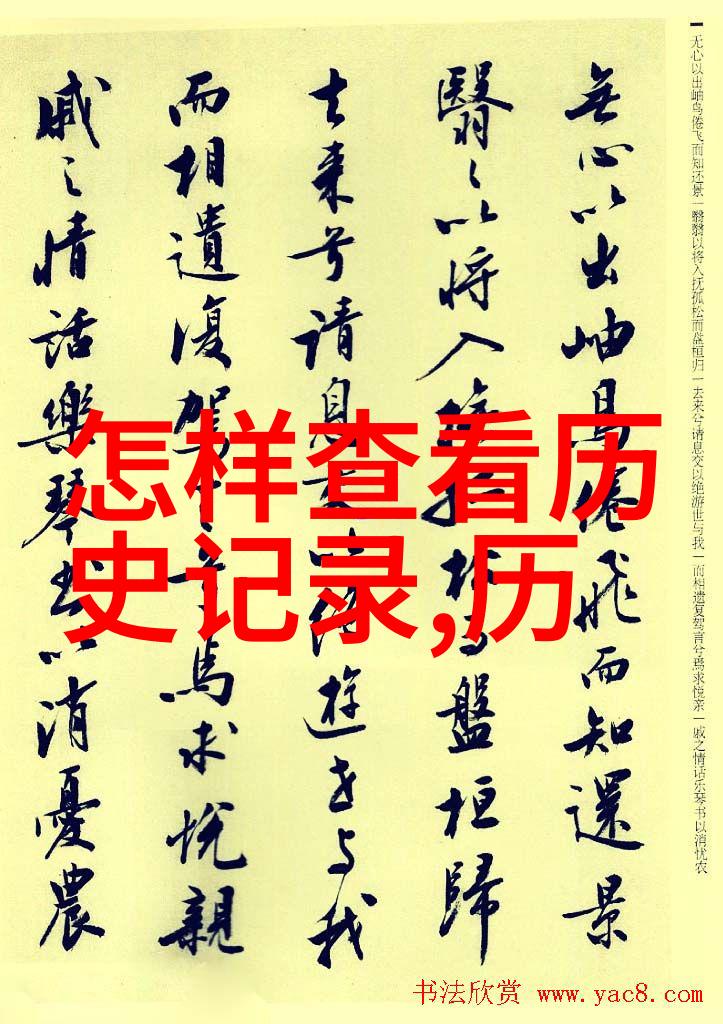 无心以出岫鸟倦飞而知还景一翳翳以将入抚孤松而盘桓归一去来兮请息交以绝游世与我一而相遗复驾言兮焉求悦亲一戚之情话乐琴书以消忧农
無心以出岫鳥倦飛而知還景
翳々以将入撫孤松而盤桓歸
去来兮请息交以絶遊世与我
而相遺復駕言兮焉求悦親
戚之情話樂琴书以消憂農
怎样查看历
史记录,历
书法欣赏 www.yac8.com